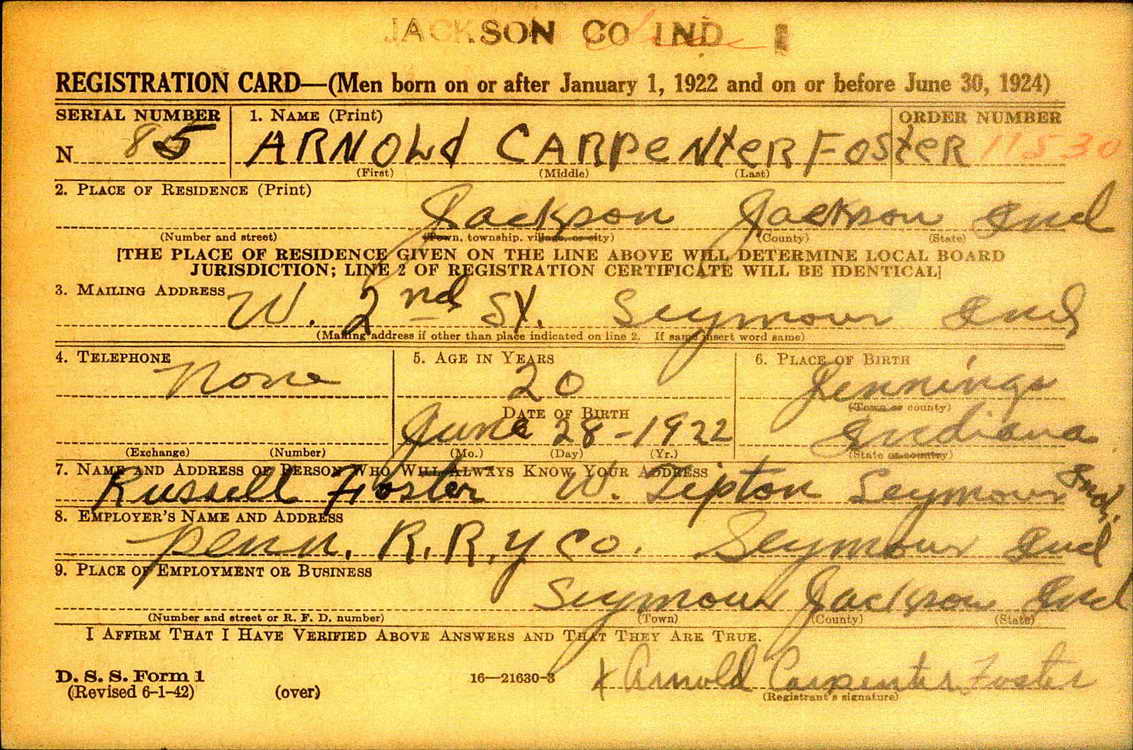 JACKSON CO IND 1
REGISTRATION CARD—(Men born on or after January 1, 1922 and on or before June 30, 1924)
SERIAL NUMBER 1. NAME (Print) ORDER NUMBER
N 85 ARNOLd CARPeNteR FOSteR 11530
(First) (Middle) (Last)
2. PLACE OF RESIDENCE (Print)
Jackson Jackson Ind
(Number and street) (Town, township, village, or city) (County) (State)
[THE PLACE OF RESIDENCE GIVEN ON THE LINE ABOVE WILL DETERMINE LOCAL BOARD
JURISDICTION; LINE 2 OF REGISTRATION CERTIFICATE WILL BE IDENTICAL]
3. MAILING ADDRESS
W. 2nd St. Seymour Ind
(Mailing address if other than place indicated on line 2. If same insert word same)
4. TELEPHONE 5. AGE IN YEARS 6. PLACE OF BIRTH
None 20 Jennings
DATE OF BIRTH (Town or county)
June 28-1922 Indiana
(Exchange) (Number) (Mo.) (Day) (Yr.) (State or country)
7. NAME AND ADDRESS OF PERSON WHO WILL ALWAYS KNOW YOUR ADDRESS
Russell Foster W. Tipton Seymour Ind.
8. EMPLOYER'S NAME AND ADDRESS
Penn. R.R.y Co. Seymour Ind
9. PLACE OF EMPLOYMENT OR BUSINESS
Seymour Jackson Ind
(Number and street or R. F. D. number) (Town) (County) (State)
I AFFIRM THAT I HAVE VERIFIED ABOVE ANSWERS AND THAT THEY ARE TRUE.
D. S. S. Form 1 16—21630-3 x Arnold Carpenter Foster
(Revised 6-1-42) (over) (Registrant's signature)